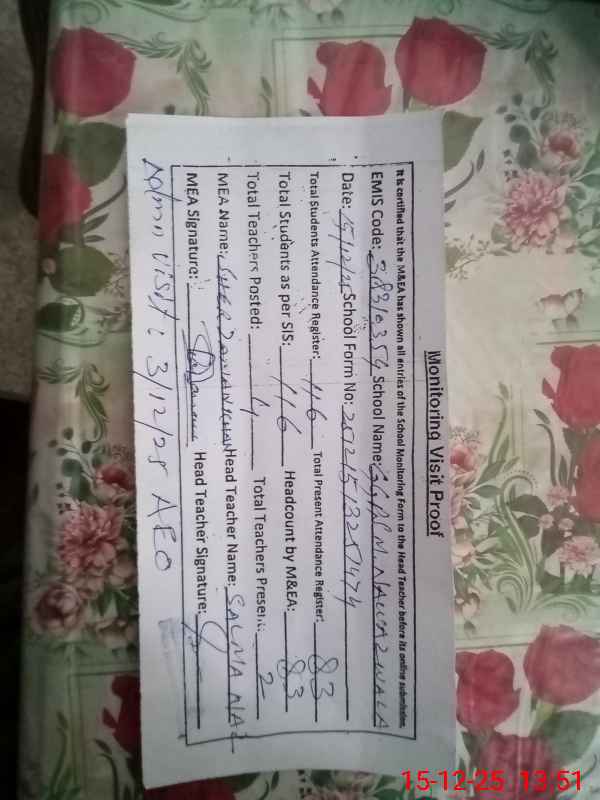 Monitoring Visit Proof
It is certified that the M&EA has shown all entries of the School Monitoring Form to the Head Teacher before its online submission.
EMIS Code: 38310354 School Name: GGPS M. NAWAZ WALA
Date: 15/12/25 School Form No:
Total Students Attendance Register: 116 Total Present Attendance Register: 83
Total Students as per SIS: 116 Headcount by M&EA: 83
Total Teachers Posted: 4 Total Teachers Present: 2
MEA Name: SHER Head Teacher Name: SALMA NAZ
MEA Signature: Head Teacher Signature:
Admn visit: 3/12/25 AEO
15-12-25 13:51